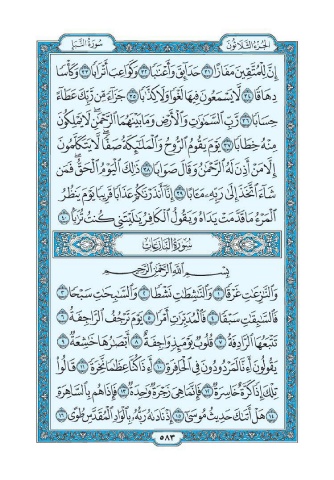 الجزء الثلاثون سورة النبإ
إِنَّ لِلْمُتَّقِينَ مَفَازًا ٣١ حَدَآئِقَ وَأَعْنَٰبًا ٣٢ وَكَوَاعِبَ أَتْرَابًا ٣٣ وَكَأْسًا
دِهَاقًا ٣٤ لَّا يَسْمَعُونَ فِيهَا لَغْوًا وَلَا كِذَّٰبًا ٣٥ جَزَآءً مِّن رَّبِّكَ عَطَآءً
حِسَابًا ٣٦ رَّبِّ ٱلسَّمَٰوَٰتِ وَٱلْأَرْضِ وَمَا بَيْنَهُمَا ٱلرَّحْمَٰنِ ۖ لَا يَمْلِكُونَ
مِنْهُ خِطَابًا ٣٧ يَوْمَ يَقُومُ ٱلرُّوحُ وَٱلْمَلَٰٓئِكَةُ صَفًّا ۖ لَّا يَتَكَلَّمُونَ
إِلَّا مَنْ أَذِنَ لَهُ ٱلرَّحْمَٰنُ وَقَالَ صَوَابًا ٣٨ ذَٰلِكَ ٱلْيَوْمُ ٱلْحَقُّ ۖ فَمَن
شَآءَ ٱتَّخَذَ إِلَىٰ رَبِّهِۦ مَـَٔابًا ٣٩ إِنَّآ أَنذَرْنَٰكُمْ عَذَابًا قَرِيبًا يَوْمَ يَنظُرُ
ٱلْمَرْءُ مَا قَدَّمَتْ يَدَاهُ وَيَقُولُ ٱلْكَافِرُ يَٰلَيْتَنِى كُنتُ تُرَٰبًۢا ٤٠
سورة النازعات
بِسْمِ ٱللَّهِ ٱلرَّحْمَٰنِ ٱلرَّحِيمِ
وَٱلنَّٰزِعَٰتِ غَرْقًا ١ وَٱلنَّٰشِطَٰتِ نَشْطًا ٢ وَٱلسَّٰبِحَٰتِ سَبْحًا ٣
فَٱلسَّٰبِقَٰتِ سَبْقًا ٤ فَٱلْمُدَبِّرَٰتِ أَمْرًا ٥ يَوْمَ تَرْجُفُ ٱلرَّاجِفَةُ ٦
تَتْبَعُهَا ٱلرَّادِفَةُ ٧ قُلُوبٌ يَوْمَئِذٍ وَاجِفَةٌ ٨ أَبْصَٰرُهَا خَٰشِعَةٌ ٩
يَقُولُونَ أَءِنَّا لَمَرْدُودُونَ فِى ٱلْحَافِرَةِ ١٠ أَءِذَا كُنَّا عِظَٰمًا نَّخِرَةً ١١ قَالُوا۟
تِلْكَ إِذًا كَرَّةٌ خَاسِرَةٌ ١٢ فَإِنَّمَا هِىَ زَجْرَةٌ وَٰحِدَةٌ ١٣ فَإِذَا هُم بِٱلسَّاهِرَةِ
١٤ هَلْ أَتَىٰكَ حَدِيثُ مُوسَىٰٓ ١٥ إِذْ نَادَىٰهُ رَبُّهُۥ بِٱلْوَادِ ٱلْمُقَدَّسِ طُوًى ١٦
٥٨٣